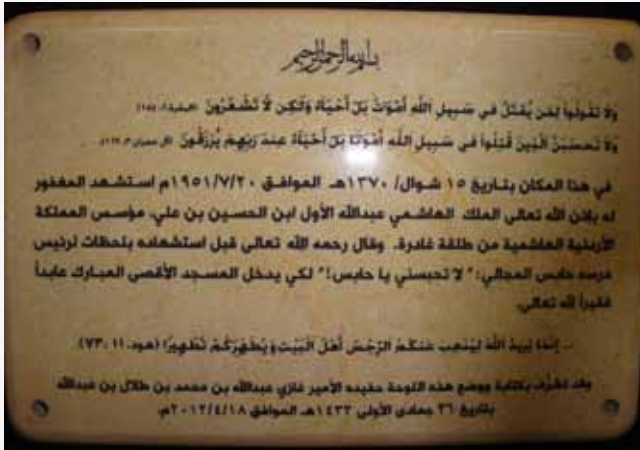 بسم الله الرحمن الرحيم
وَلَا تَقُولُوا لِمَن يُقْتَلُ فِي سَبِيلِ اللَّهِ أَمْوَاتٌ بَلْ أَحْيَاءٌ وَلَٰكِن لَّا تَشْعُرُونَ
وَلَا تَحْسَبَنَّ الَّذِينَ قُتِلُوا فِي سَبِيلِ اللَّهِ أَمْوَاتًا بَلْ أَحْيَاءٌ عِندَ رَبِّهِمْ يُرْزَقُونَ
في هذا المكان بتاريخ ١٥ شوال/ ١٣٧٠هـ الموافق ١٩٥١/٧/٢٠م استشهد المغفور
له بإذن الله تعالى الملك الهاشمي عبدالله الأول ابن الحسين بن علي، مؤسس المملكة
الأردنية الهاشمية من طلقة غادرة. وقال رحمه الله تعالى قبل استشهاده بلحظات لرئيس
حرسه حابس المجالي: "لا تحبسني يا حابس!" لكي يدخل المسجد الأقصى المبارك عابداً
فقيراً لله تعالى.
.. إِنَّمَا يُرِيدُ اللَّهُ لِيُذْهِبَ عَنكُمُ الرِّجْسَ أَهْلَ الْبَيْتِ وَيُطَهِّرَكُمْ تَطْهِيرًا (هود، ١١ :٧٣).
وقد تشرّف بكتابة ووضع هذه اللوحة حفيده الأمير غازي عبدالله بن محمد بن طلال بن عبدالله
بتاريخ ٢٦ جمادى الأولى ١٤٣٣هـ الموافق ٢٠١٢/٤/١٨م.